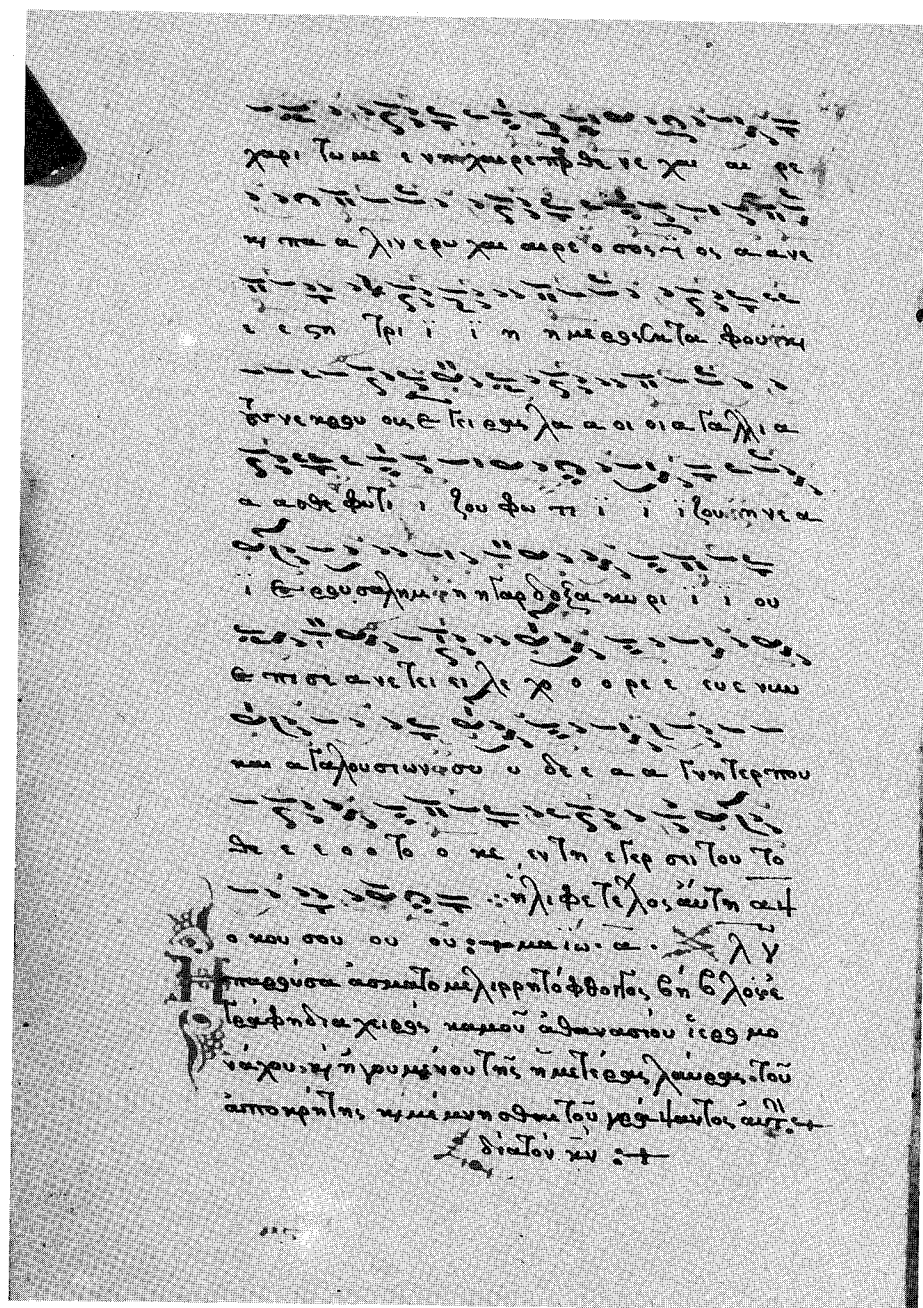 χαρι τω με ε νη χαιρε πρθε νε χαι αι ρε
κ πα α λιν ερυ χαι αιρε ο σος ϊ ος α α νε
ε ε ση τρι ϊ ϊ η ημερας κ τα φου κ
νεκρου ους ε γει ρας λα α οι οι α γαλλι α
α ασθε φωτι ι ζου φω τι ϊ ϊ ϊ ζου η νε α
ϊ ε ρουσαλημ η γαρ δοξα κυ ρι ϊ ϊ ου
ε πι σε α νε τει ει λε χο ο ρε ε ευε νυν
και αγαλου σιων συ υ δε ε α α γνη τερπου
θε ε ε ο ο το ο κε εν τη εγερ σει του το
ηλιφε τελος αύτη
ο κου σου ου ου μαϊω. α. λ γ
Η παρουσα ασματομελιρρητόφθογγος βηβλος ε
γράφη δια χειρος καμοῦ ἀθανασίου ἱερομο
νάχου. κ ηγουμένου τῆς ἡμετέρας λαύρας. τοῦ
ἀποκρήτης κ μέμνησθαι τοῦ γράψαντος αὐτ
διατόν κν :+